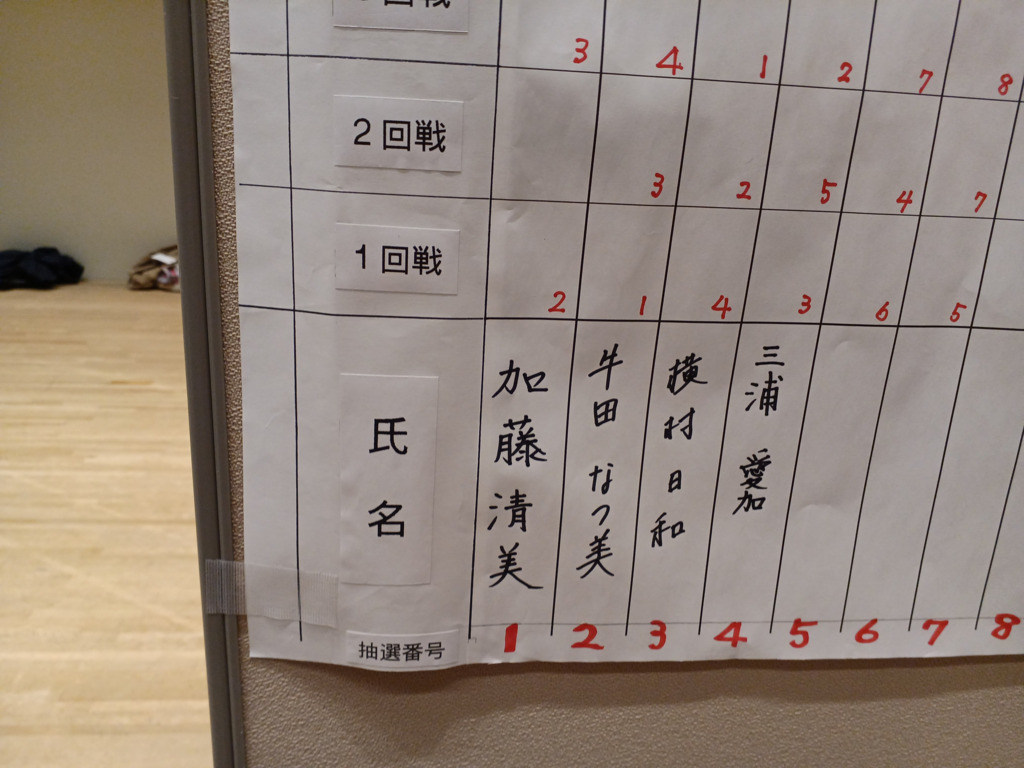 3回戦
3 4 1 2 7 8
2回戦
3 2 5 4 7
1回戦
2 1 4 3 6 5
氏名
加藤清美
牛田なつ美
横村日和
三浦愛加
抽選番号 1 2 3 4 5 6 7 8